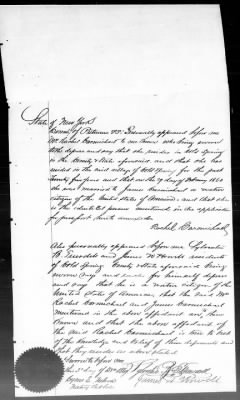 State of New York
County of Putnam SS: Personally appeared before me
Mrs Rachel Carmichael to me known who being sworn
did depose and say that she resides in Cold Spring
in the County & State aforesaid, and that she has
resided in the said village of Cold Spring for the past
twenty five years and that on the 29 day of February 1860
she was married to James Carmichael a native
citizen of the United States of America; and that she
is the identical person mentioned in the application
for passport hereto annexed
Rachel Carmichael
Also personally appeared before me Sylvester
B. Truesdell and James residents
of Cold Spring County & State aforesaid being
sworn says and each for himself deposes
and says that he is a native citizen of the
United States of America, that the said Mrs
Rachel Carmichael and James Carmichael
mentioned in the above affidavit are them
known and that the above affidavit of
the said Rachel Carmichael is true to best
of the knowledge and belief of these deponents and
that they reside as above stated
Sworn to before me
this day of
Notary Public